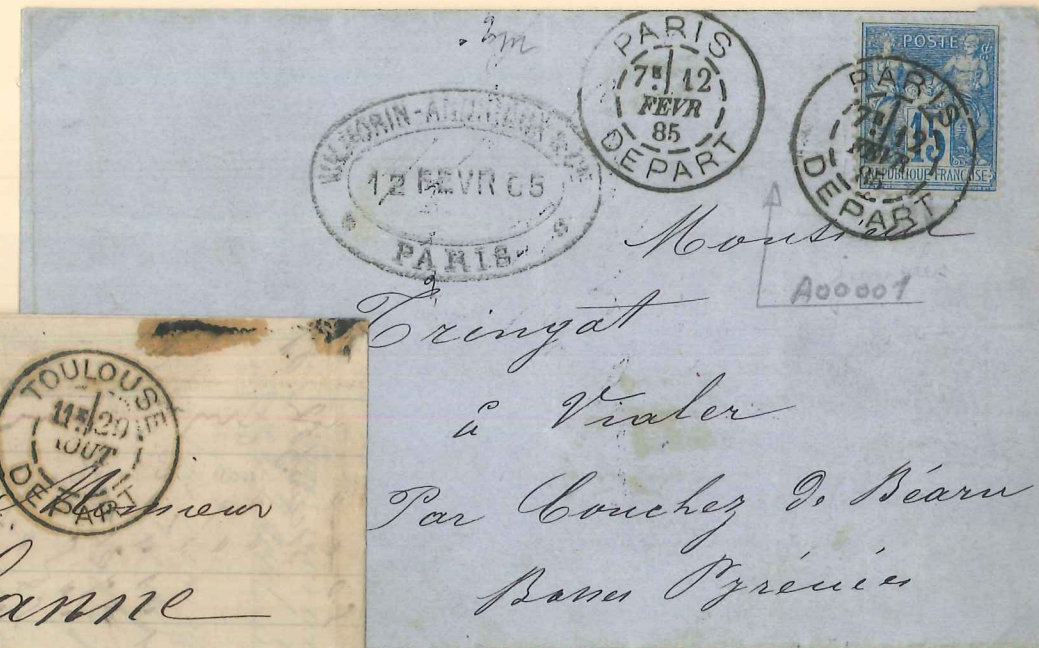 PARIS
7E 12
FEVR
85
DEPART
POSTE
15
REPUBLIQUE FRANCAISE
PARIS
7E 12
FEVR
85
DEPART
VILMORIN-ANDRIEUX & CIE
12 FEVR 85
PARIS
A00001
Monsieur
Tringat
à Vialer
Par Conchez de Béarn
Basses Pyrénées
TOULOUSE
11E 29
AOUT
DEPART
Monsieur